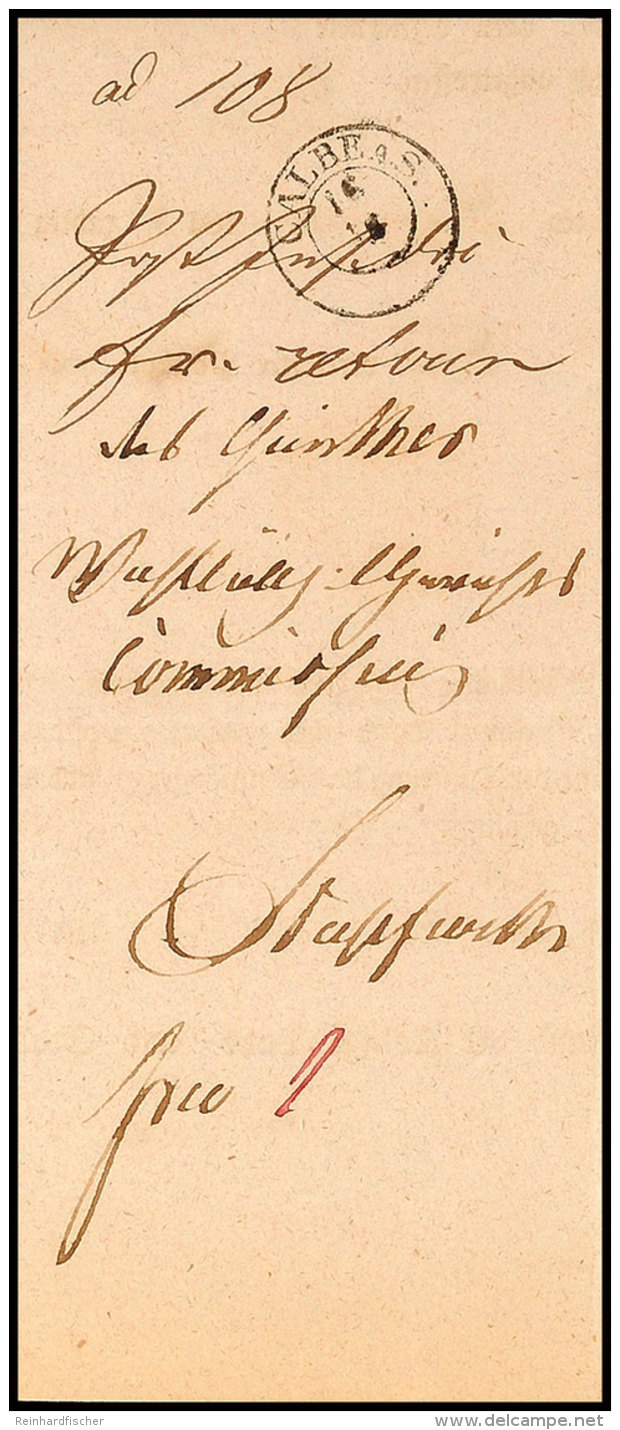 ad 108
CALBE A.S.
16
fr. retour
des Günther
Commission
Stassfurth
frco 1
Reinhardfischer
www.delcampe.net